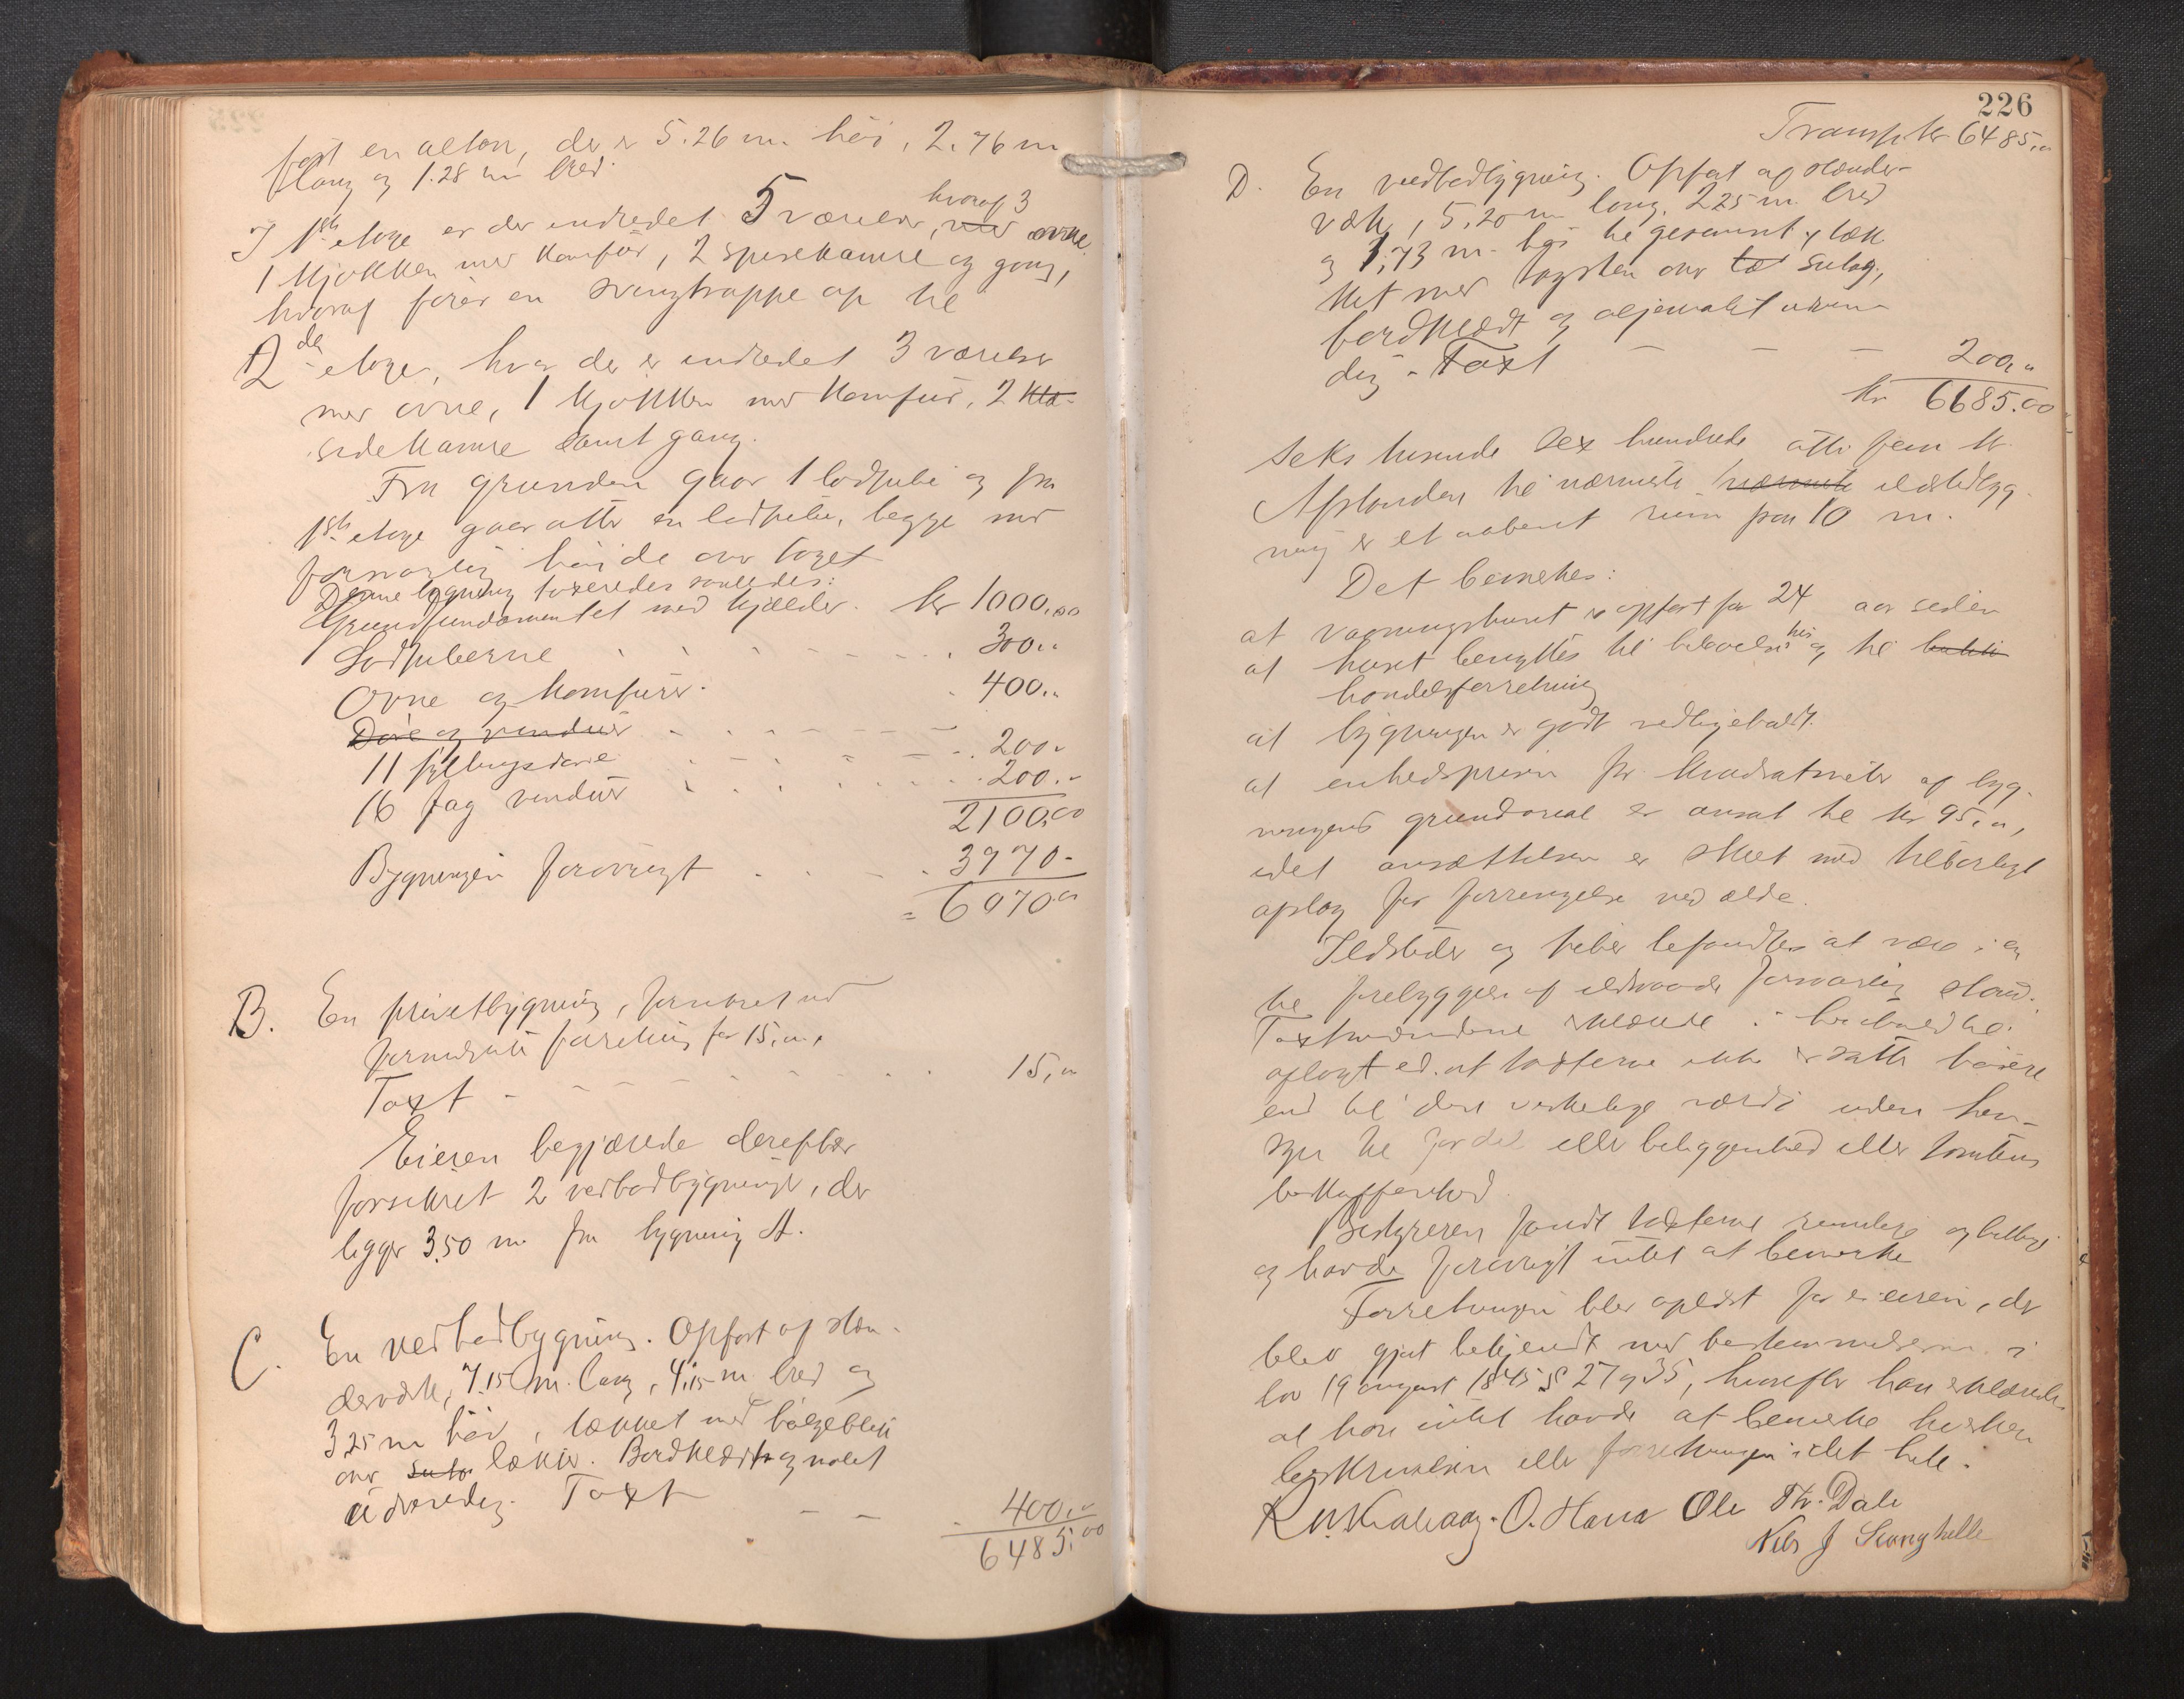 fast en altan, der er 5.26 m. høi, 2.76 m
lang og 1.28 m bred.
I 1ste etage er der indredet 5 værelser, hvoraf 3 med ovne,
1 kjøkken med komfur, 2 spisekamre og gang,
hvoraf fører en svingtrappe op til
2den etage, hvor der er indredet 3 værelser
med ovne, 1 kjøkken med komfur, 2 kla-
sidekamre samt gang.
Fra grunden gaar 1 lodpibe og fra
1ste etage gaar atter en lodpibe, begge med
forsvarlig høide over taget
Denne bygning taxeredes saaledes:
Grundfundamentet med kjælder. kr 1000,00
Lodpiberne 300,"
Ovne og komfurer. 400,"
Døre og vinduer
11 fyllingsdøre 200,"
16 fag vinduer 200,"
2100,00
Bygningen forøvrigt 3970-
= 6070,00
B. En privetbygning, forsikret ved
forrige forretning for 15,",
Taxt - 15,"
Eieren begjærede derefter
forsikret 2 vedbodbygninger, der
ligger 3.50 m fra bygning A.
C. En vedbodbygning. Opført af stæn-
derværk, 7.15 m. lang, 4.15 m bred og
3.25 m høi, tækket med bølgeblik
over suta lækter. Bordklædt og malet
udvendig. Taxt - - 400,"
6485,00
226
Transp. kr 6485,"
D. En vedbodbygning. Opført af stænder-
værk, 5,20 m lang, 2.25 m bred
og 1,73 m. høi til gesimset, tæk-
ket med tagsten over tæ sutag,
bordklædt og oljemalet udven-
dig. Taxt - - - 200,"
kr 6685.00
Seks tusende sex hundrede otti fem kr.
Afstanden til nærmeste nærmeste ildstedbyg-
ning er et aabent rum paa 10 m.
Det bemerkes:
at vaaningshuset er opført for 24 aar siden
at huset benyttes til beboelseshus og til butik
handelsforretning
at bygningen er godt vedligeholdt.
at enhedsprisen pr. kvadratmeter af byg-
ningens grundareal er ansat til kr 95,",
idet ansættelsen er skeet med tilbørligt
afslag for forringelse ved ælde.
Ildsteder og piber befandtes at være i en
til forebyggelse af ildsvaade forsvarlig stand.
Taxtmændene erklærede i henhold til
aflagt ed, at taxterne ikke er satte høiere
end til den virkelige værdi uden hen-
syn til fordel eller beliggenhed eller tomtens
beskaffenhed
Bestyreren fandt taxterne rimelige og billige
og havde forøvrigt intet at bemerke
Forretningen blev oplæst for eieren, der
blev gjort bekjendt med bestemmelserne i
lov 19 august 1845 § 27 og 35, hvorefter han erklærede,
at han intet havde at bemerke hverken
beskrivelsen eller forretningen i det hele.
O. Hana Ole Th. Dale
Nils J